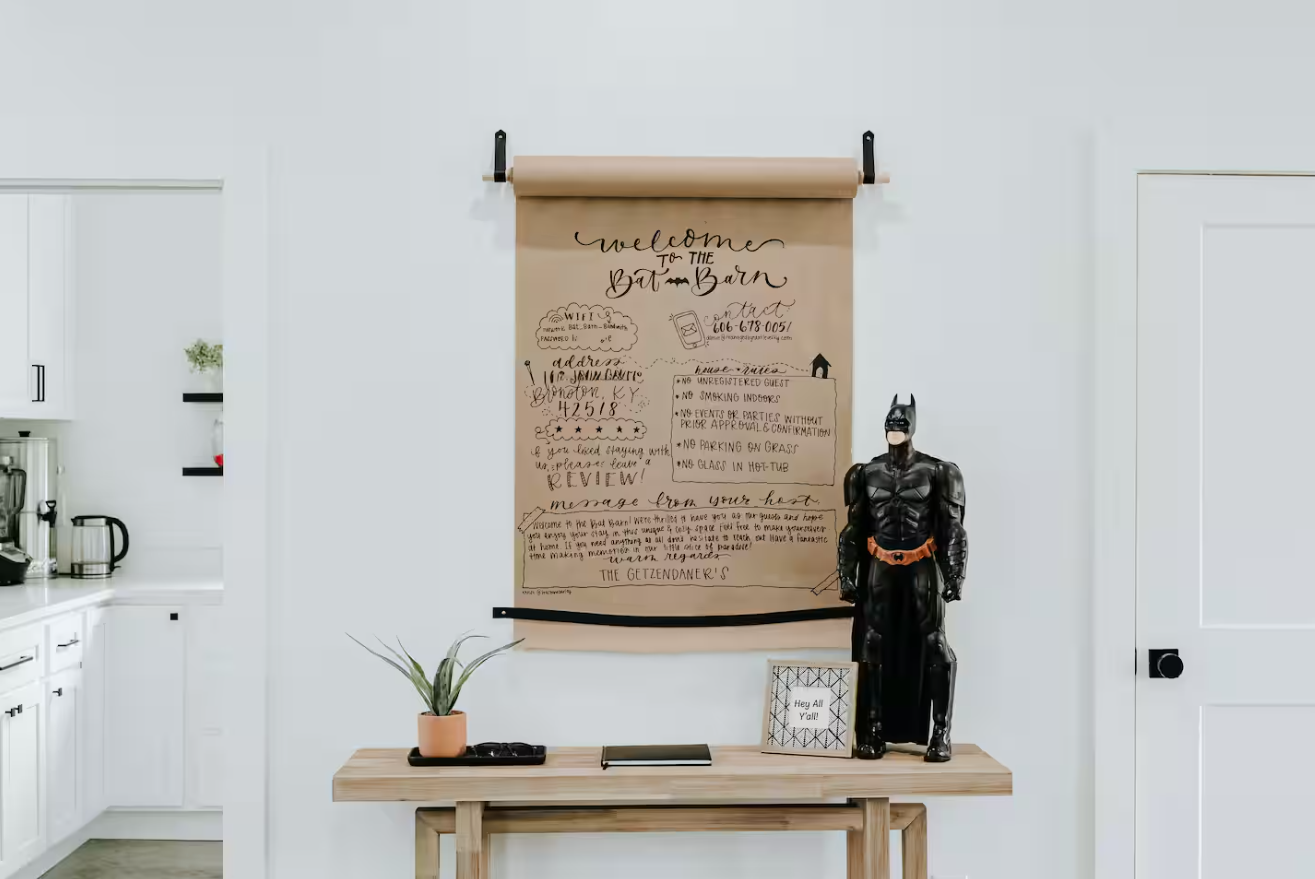 welcome
TO THE
Bat Barn
WIFI
NETWORK: Bat_Barn_Bandwith
PASSWORD IS:
contact
606-678-0051
address
Bronston, KY
42518
if you loved staying with
us, please leave a
REVIEW!
house rules
• NO UNREGISTERED GUEST
• NO SMOKING INDOORS
• NO EVENTS OR PARTIES WITHOUT
PRIOR APPROVAL & CONFIRMATION
• NO PARKING ON GRASS
• NO GLASS IN HOT-TUB
message from your host
Welcome to the Bat Barn! We're thrilled to have you as our guests and hope
you enjoy your stay in this unique & cozy space. Feel free to make yourselves
at home. If you need anything at all don't hesitate to reach out. Have a fantastic
time making memories in our little slice of paradise!
warm regards
THE GETZENDANER'S
Hey All
Y'all!